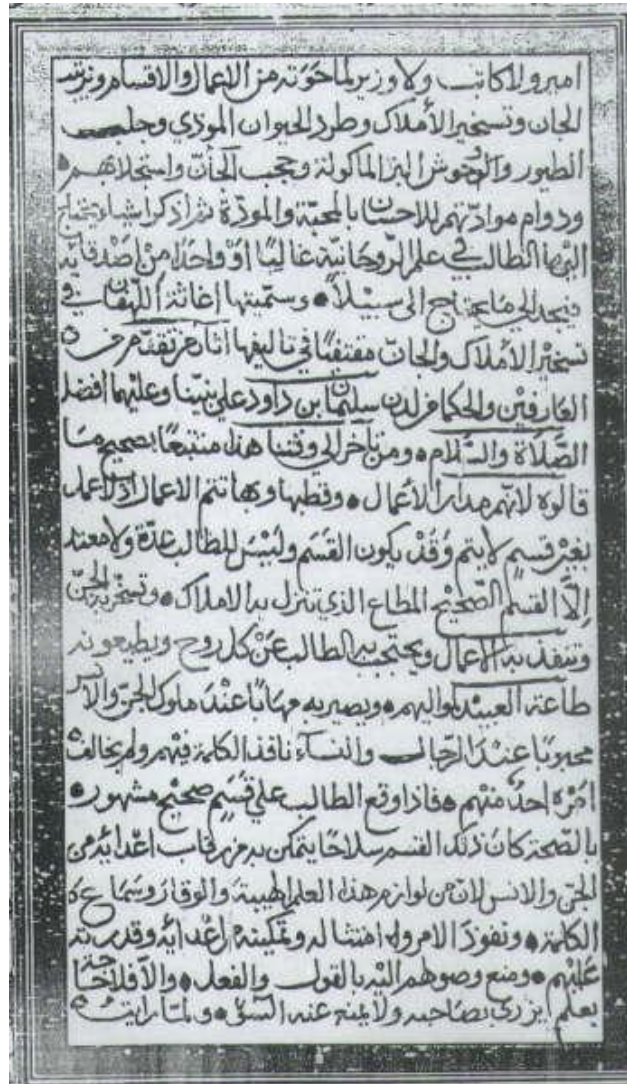 امير ولا كاتب ولا وزير لما حوته من الاعمال والاقسام
الجان وتسخير الأملاك وطرد الحيوان الموذي وجلب
الطيور والوحوش البر الماكولة وحجب الجانّ واستجلابهم
ودوام موادّتهم للاحسان بالمحبّة والمودّة ثم اذكر اشياء يحتاج
اليها الطالب في علم الرّوحانيّة غالبًا اوْ واحدًا منْ اصْدقائه
فيجد الي ما يحتاج الى سبيْلاً وسمّيتها اغاثة اللّهفان في
تسخيْر الأملاك والجانّ مقتفيًا في تاليفها آثار من تقدّم من
العارفيْن والحكما من لدن سليْمان بن داود على نبيّنا وعليْهما افضل
الصّلاة والسّلام ومن تاخر الي وقتنا هذا متتبّعًا بصحيح ما
قالوه لانّهم مدار الأعمال وقطبها وبها تتم الاعمال اذ لا عمل
بغيْر قسم لا يتم وقدْ يكون القسَم وليْسَ للطالب عدّة ولا معتد
إلاّ القسم الصّحيْح المطاع الذي تتنزل به الاملاك وتسخّر به الجنّ
وتنفذ به الأعمال ويحتجب به الطالب عنْ كل روح ويطيعونه
طاعة العبيْد لمواليهم ويصير به مهابًا عنْد ملوك الجنّ والانس
محبوبًا عنْد الرّجال والنسآء نافذ الكلمة فيْهم ولم يخالف
امْره احدٌ منْهم فاذا وقع الطالب علي قسَمٍ صحيْح مشهور
بالصّحة كان ذلك القسم سلاحًا يتمكن به من رقاب اعْدائه من
الجنّ والانس لانّ من لوازم هذا العلم الهيبة والوقار وسماع
الكلمة ونفوذ الامر وامتثاله وتمكينه من اعْدائه وقدرته
عليْهم ومنع وصولهم اليْه بالقول والفعل والاّ فلا حاجة
بعلم يزري بصاحبه ولا يمنع عنه السّوْء ولمّا رايت